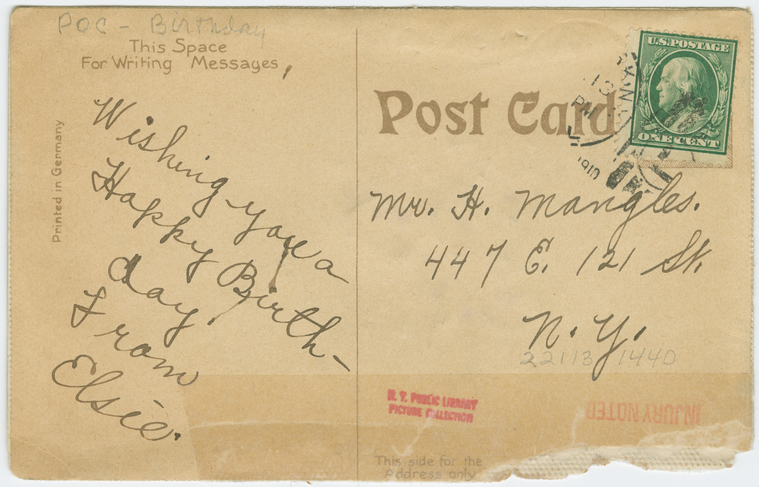 POC - Birthday
This Space
For Writing Messages
Printed in Germany
Wishing you a
Happy Birth-
day.
From
Elsie.
Post Card
U.S. POSTAGE
ONE CENT
13
PM
1910
Mr. H. Mangles.
447 E. 121 St.
N.Y.
22113 1440
N. Y. PUBLIC LIBRARY
PICTURE COLLECTION
INJURY NOTED
This side for the
Address only